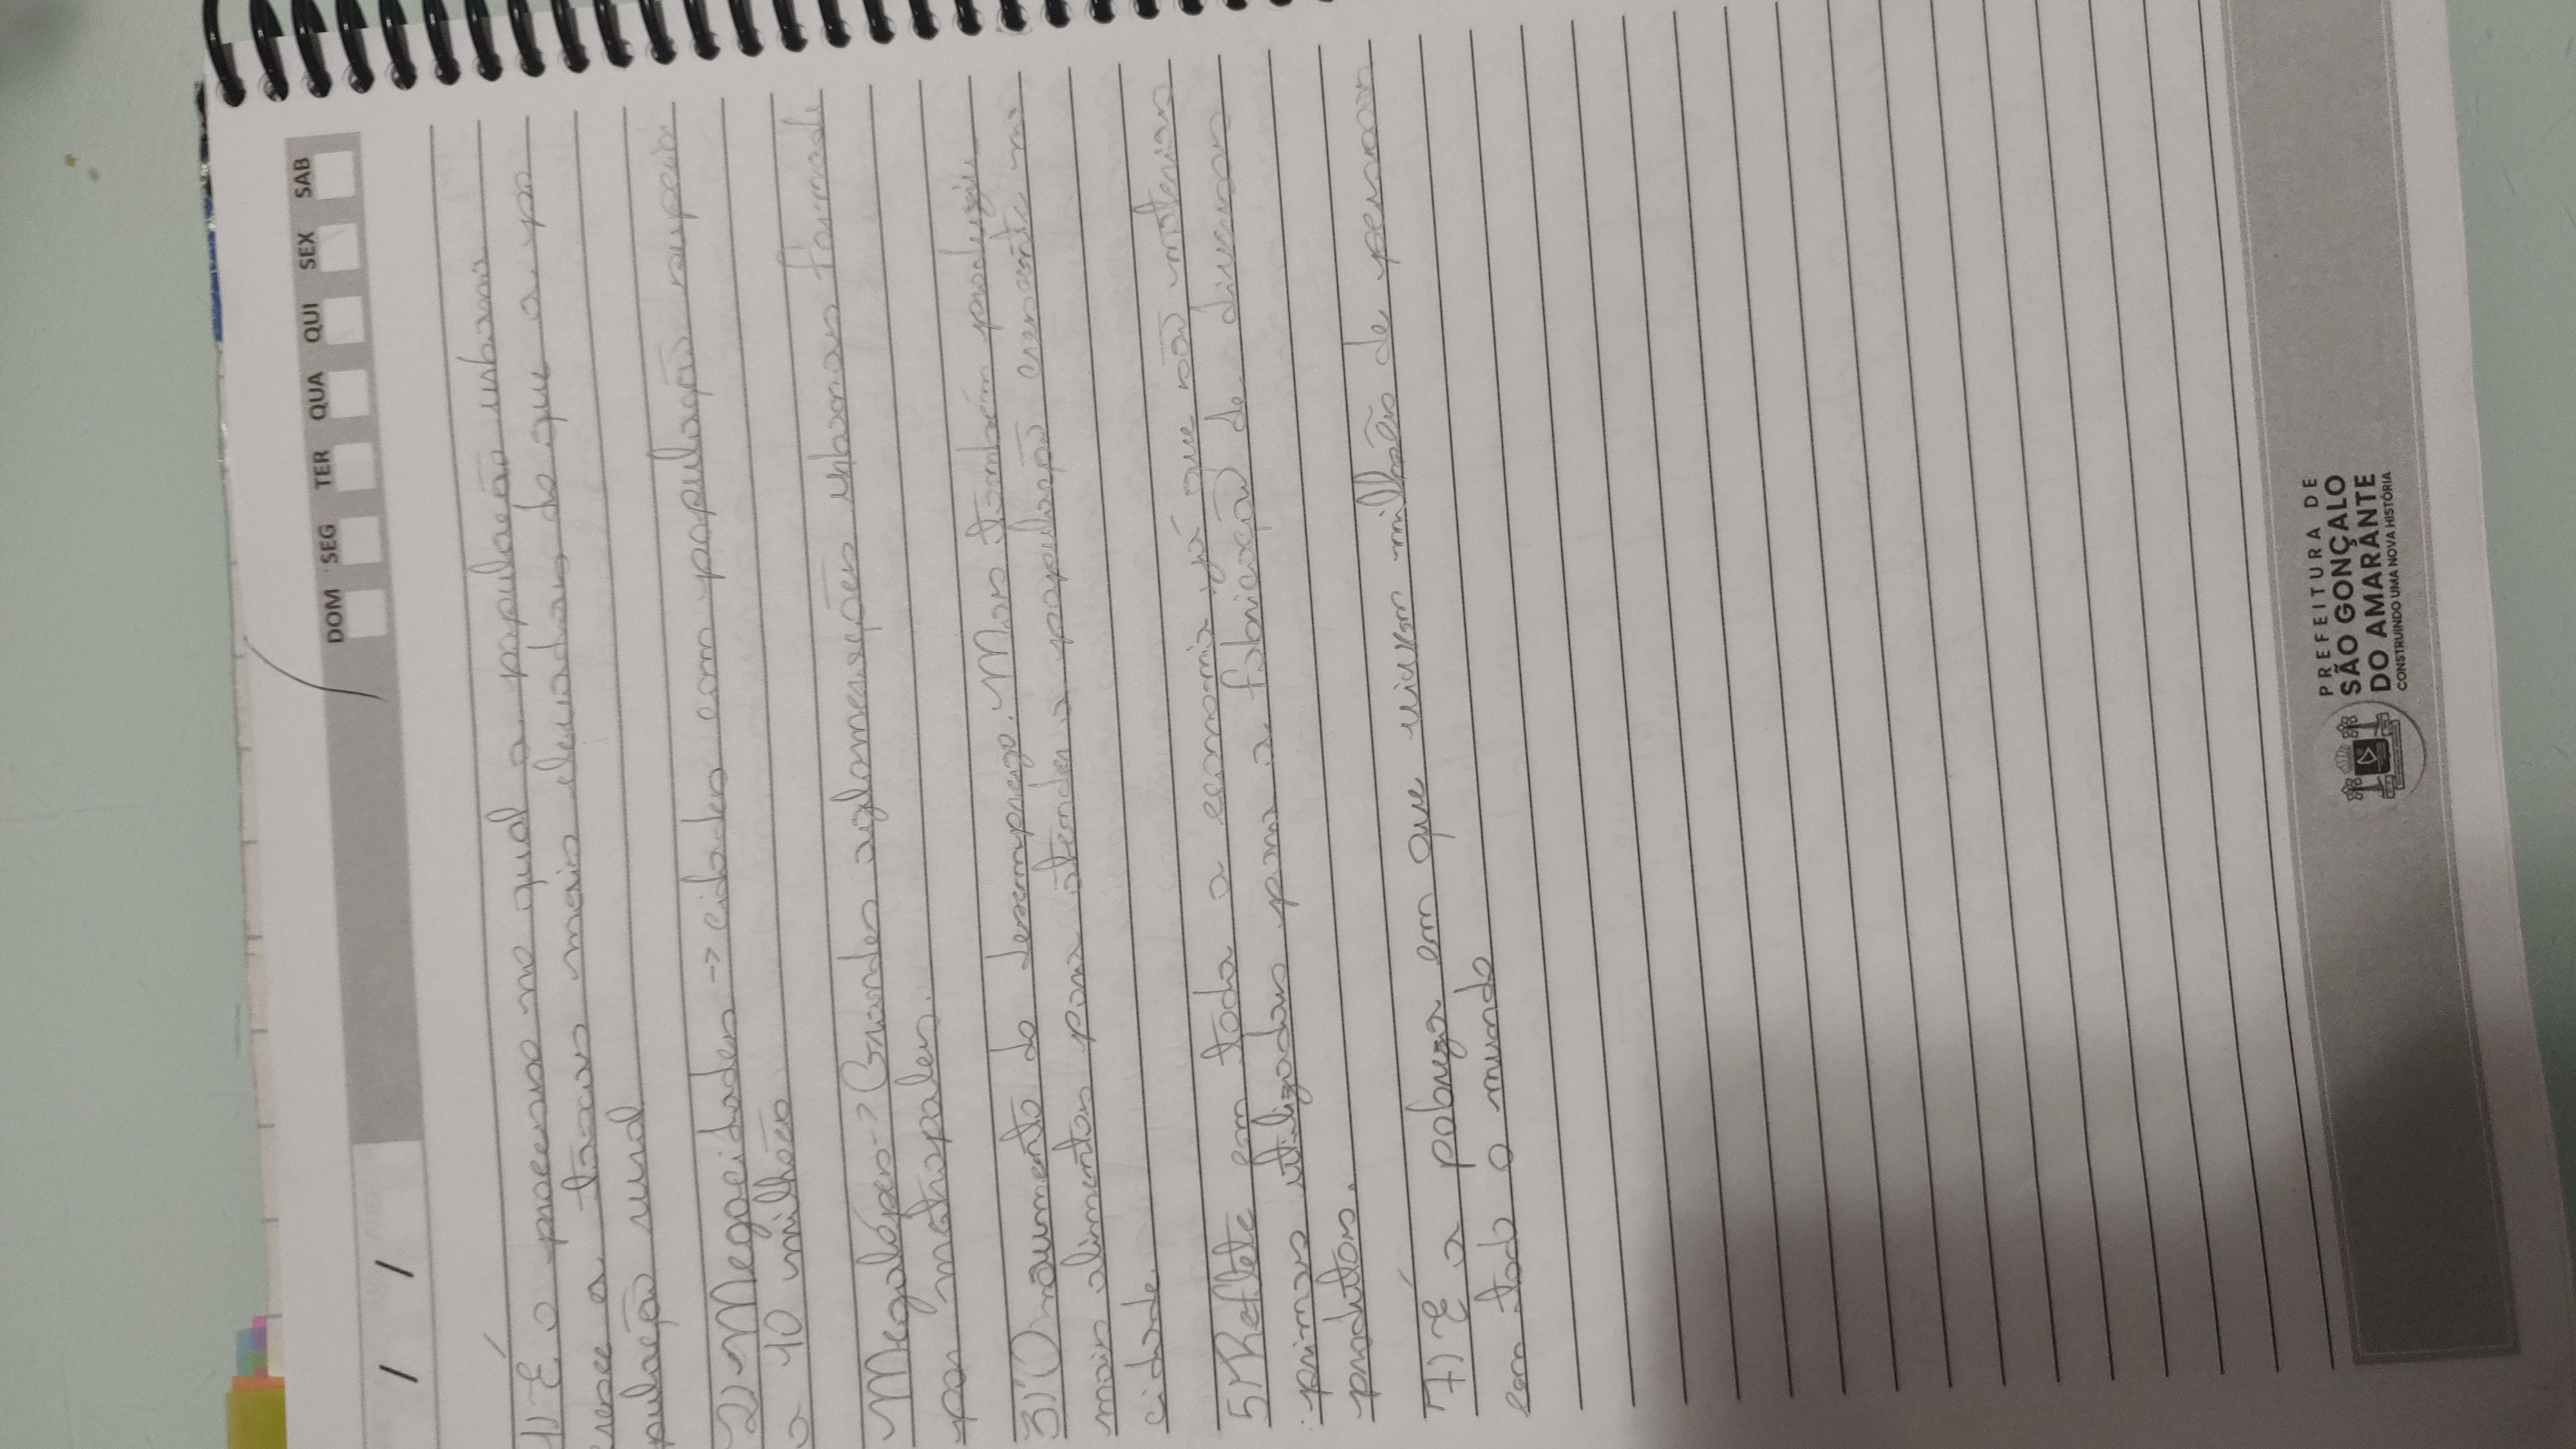 DOM SEG TER QUA QUI SEX SAB
/ /
1) É o processo no qual a população urbana
cresce a taxas mais elevadas do que a po
pulação rural
2) Megacidades → cidades com população superior
a 10 milhões
Megalópes → Grandes aglomerações urbanas formada
por metropoles.
3) O aumento do desemprego. Mas também produziu
mais alimentos para atender a população crescente na
cidade.
5) Reflete em toda a economia, já que são materias
primas utilizadas para a fabricação de diversos
produtos.
7) É a pobreza em que vivem milhões de pessoas
em todo o mundo
PREFEITURA DE
SÃO GONÇALO
DO AMARANTE
CONSTRUINDO UMA NOVA HISTÓRIA